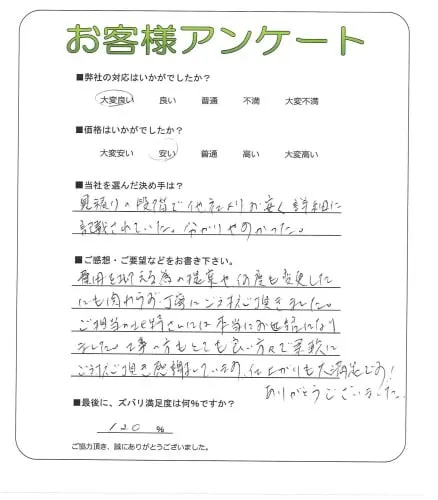 お客様アンケート
■弊社の対応はいかがでしたか？
大変良い 良い 普通 不満 大変不満
■価格はいかがでしたか？
大変安い 安い 普通 高い 大変高い
■当社を選んだ決め手は？
見積りの段階で他社よりお安く詳細に
記載されていた。分かりやすかった。
■ご感想・ご要望などをお書き下さい。
費用を抑える為の提案や何度も変更した
にも関わらず丁寧にご対応頂きました。
ご担当の さんには本当にお世話になり
ました。工事の方もとても良い方々で柔軟に
ご対応頂き感謝しています。仕上がりも大満足です！
ありがとうございました。
■最後に、ズバリ満足度は何％ですか？
120 ％
ご協力頂き、誠にありがとうございました。